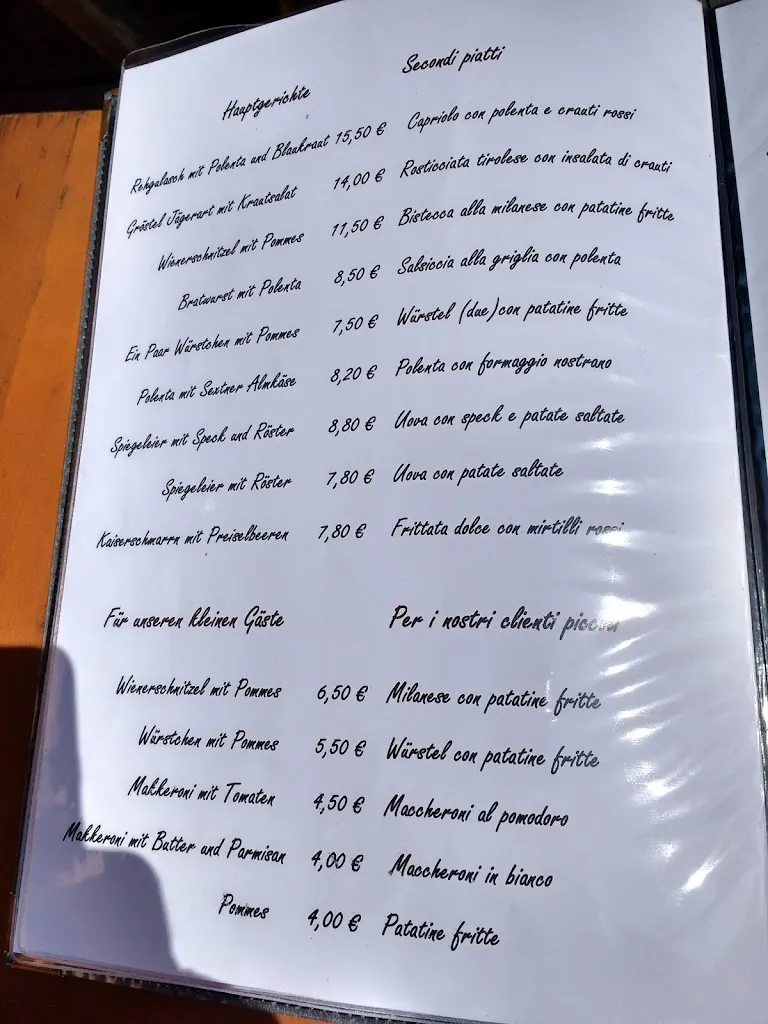 Hauptgerichte Secondi piatti
Rehgulasch mit Polenta und Blaukraut 15,50 € Capriolo con polenta e crauti rossi
Gröstel Jägerart mit Krautsalat 14,00 € Rosticciata tirolese con insalata di crauti
Wienerschnitzel mit Pommes 11,50 € Bistecca alla milanese con patatine fritte
Bratwurst mit Polenta 8,50 € Salsiccia alla griglia con polenta
Ein Paar Würstchen mit Pommes 7,50 € Würstel (due)con patatine fritte
Polenta mit Sextner Almkäse 8,20 € Polenta con formaggio nostrano
Spiegeleier mit Speck und Röster 8,80 € Uova con speck e patate saltate
Spiegeleier mit Röster 7,80 € Uova con patate saltate
Kaiserschmarrn mit Preiselbeeren 7,80 € Frittata dolce con mirtilli rossi
Für unseren kleinen Gäste Per i nostri clienti piccoli
Wienerschnitzel mit Pommes 6,50 € Milanese con patatine fritte
Würstchen mit Pommes 5,50 € Würstel con patatine fritte
Makkeroni mit Tomaten 4,50 € Maccheroni al pomodoro
Makkeroni mit Butter und Parmisan 4,00 € Maccheroni in bianco
Pommes 4,00 € Patatine fritte